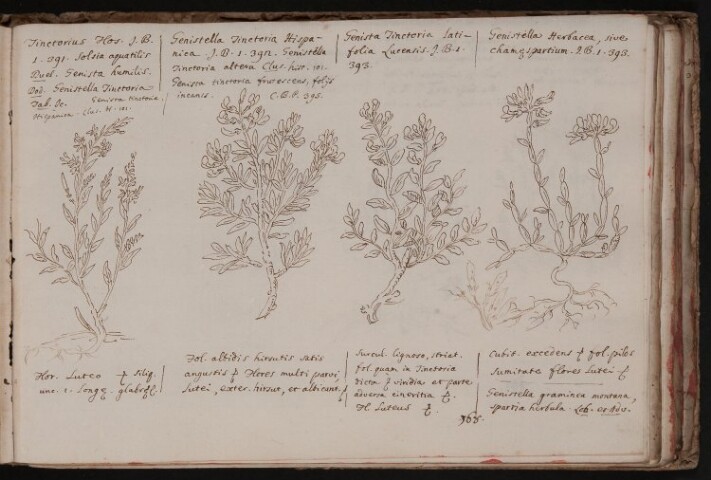 Tinctorius Flos. J.B.
1.391. Solsia aquatilis
Ruel. Genista humilis.
Dod. Genistella Tinctoria
Tab. &c. Genistra tinctoria
Hispanica. Clus. H. 101.
Genistella Tinctoria Hispa-
nica. J.B. 1.392. Genistella
Tinctoria altera Clus. hist. 101.
Genista tinctoria frutescens, foliis
incanis. C.B.P. 395.
Genista Tinctoria Lati-
folia Lucensis. J.B. 1.
393.
Genistella Herbacea, sive
chamæspartium. J.B. 1.393.
Flor. Luteo siliq.
unc. 2. Longæ glabræ
Fol. albidis hirsutis satis
angustis Flores multi parvi
Lutei, exter. hirsut, et albicant.
Surcul. lignoso, striat.
fol. quam in Tinctoria
viridia et parte
adversa cineritia
Fl. Luteus
Cubit. excedens fol. piles
sumitate flores Lutei
Genistella graminea montana,
spartia herbula. Lob.
368.